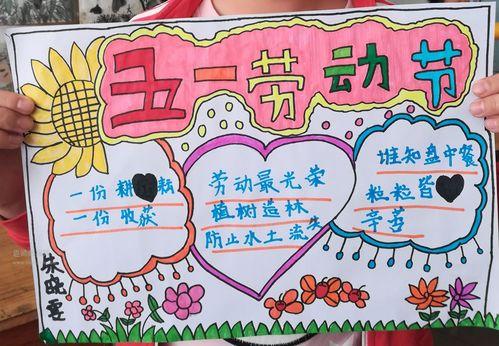 五一劳动节
一份耕耘
一份收获
劳动最光荣
植树造林
防止水土流失
谁知盘中餐
粒粒皆
辛苦
朱